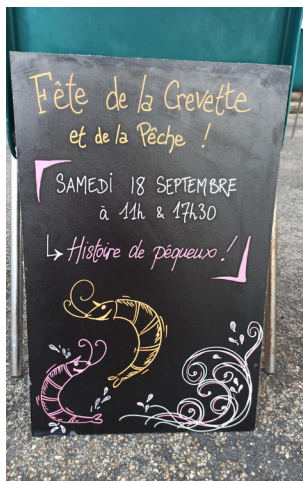 Fête de la Crevette
et de la Pêche !
SAMEDI 18 SEPTEMBRE
à 11h & 17h30
↳ Histoire de péqueux !